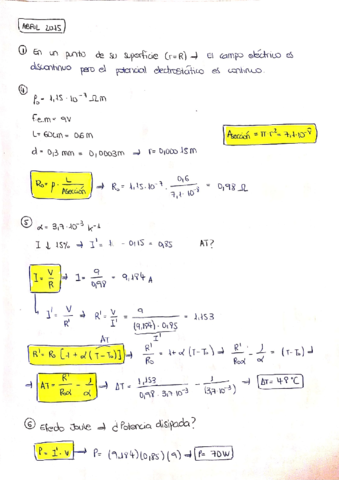 ABRIL 2015
① En un punto de su superficie (r=R) → El campo eléctrico es
discontinuo pero el potencial electrostático es continuo.
④
ρ₀ = 1,15·10⁻⁷ Ωm
f.e.m = 9V
L = 60cm = 0,6m
d = 0,3 mm = 0,0003m → r = 0,00015m
Asección = π r² = 7,1·10⁻⁸
R₀ = ρ · L / Asección → R₀ = 1,15·10⁻⁷ · 0,6 / 7,1·10⁻⁸ = 0,98 Ω
⑤ α = 3,7·10⁻³ K⁻¹
I ↓ 15% → I' = 1 - 0,15 = 0,85 ΔT?
I = V/R → I = 9/0,98 = 9,184 A
I' = V/R' → R' = V/I' = 9/(9,184)·0,85 = 1,153
R' = R₀ [1 + α (T - T₀)] → R'/R₀ = 1 + α (T - T₀) → R'/R₀α - 1/α = (T - T₀) →
→ ΔT = R'/R₀α - 1/α → ΔT = 1,153/0,98·3,7·10⁻³ - 1/(3,7·10⁻³) → ΔT = 48 °C
⑥ Efecto Joule → ¿Potencia disipada?
P = I' · V → P = (9,184)(0,85)(9) → P = 70W